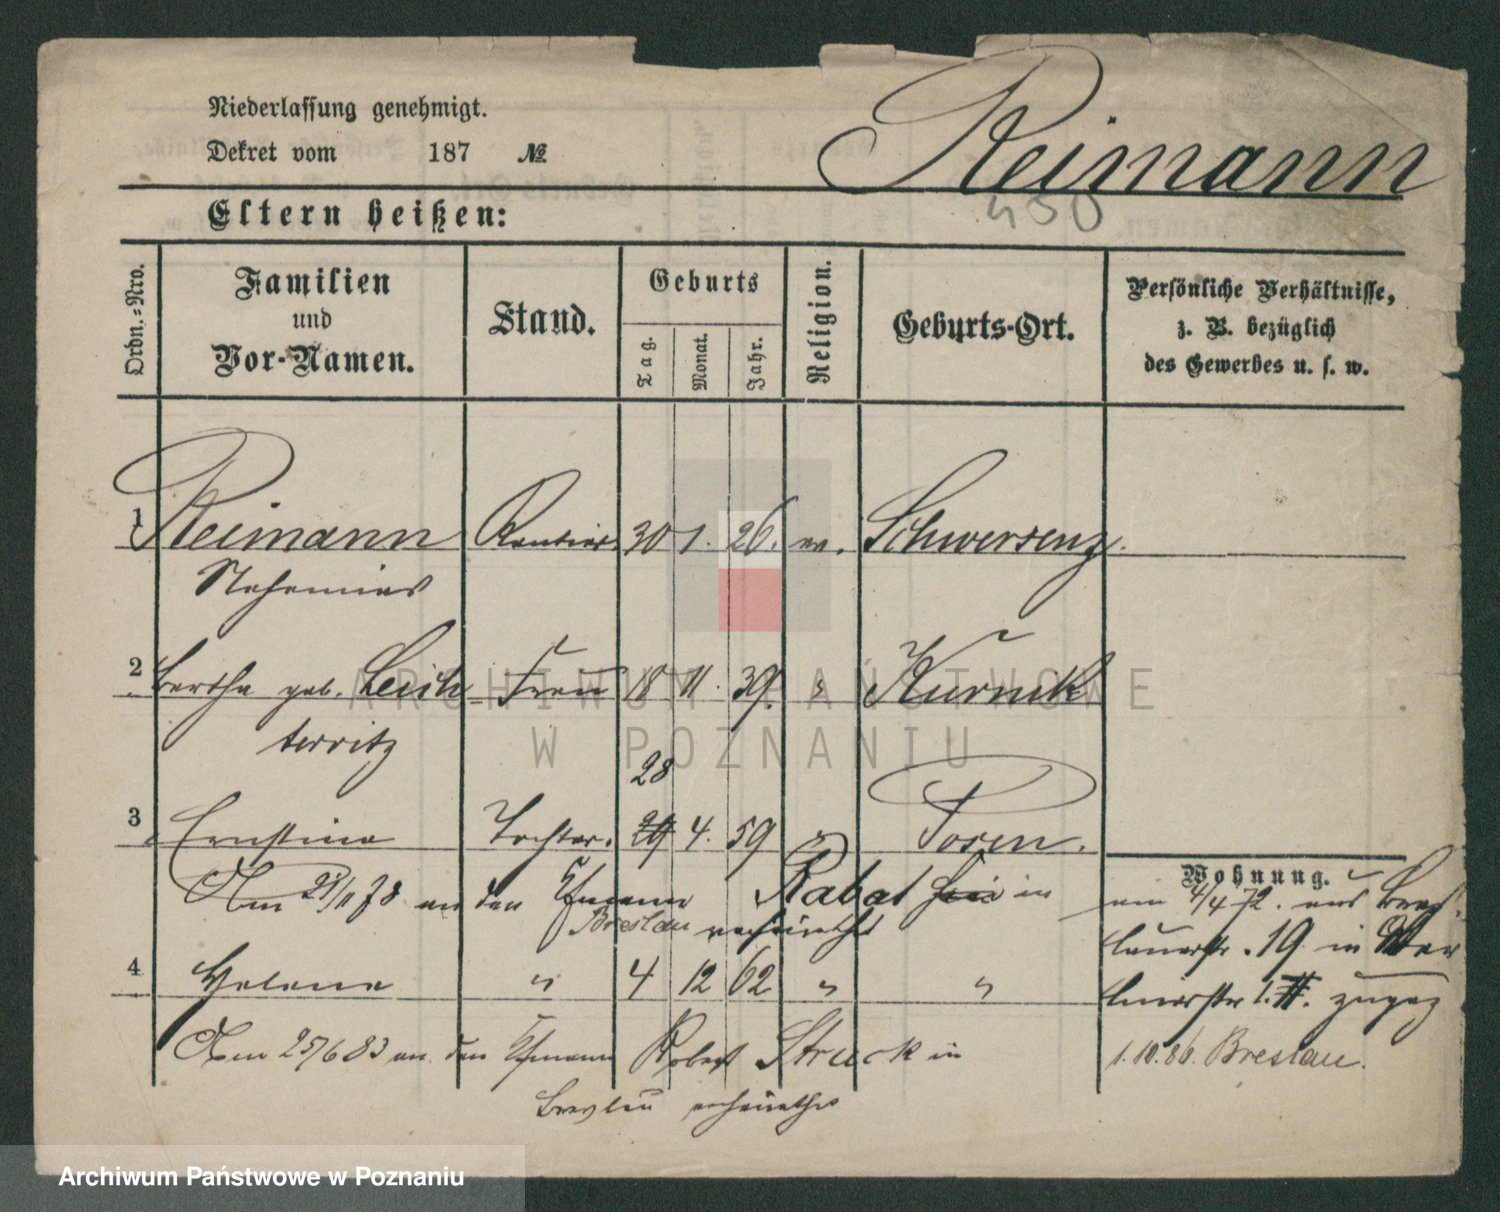 Niederlassung genehmigt.
Dekret vom 187 №
Reimann
450
Eltern heißen:
Ordn.-Nro.
Familien
und
Vor-Namen.
Stand.
Geburts
Tag.
Monat.
Jahr.
Religion.
Geburts-Ort.
Persönliche Verhältnisse,
z. B. bezüglich
des Gewerbes u. s. w.
1 Reimann Rentier 30 1. 26. Schwersenz.
Nehemias
2 Bertha geb. Leich- Frau 18 11. 39. " Kurnik
tenritz
28
3 Ernstine Tochter. 29 4. 59 " Posen.
Am 23/1 78 an den Rabat in
Breslau verheirathet
4 Helene " 4 12 62 " "
Am 25/6 83 an den Robert Struck in
Breslau verheirathet
Wohnung.
am 4/4 72. aus Bres-
lauerstr. 19 in
1. II. zugez
1.10.86. Breslau.
ARCHIWUM PAŃSTWOWE
W POZNANIU
Archiwum Państwowe w Poznaniu